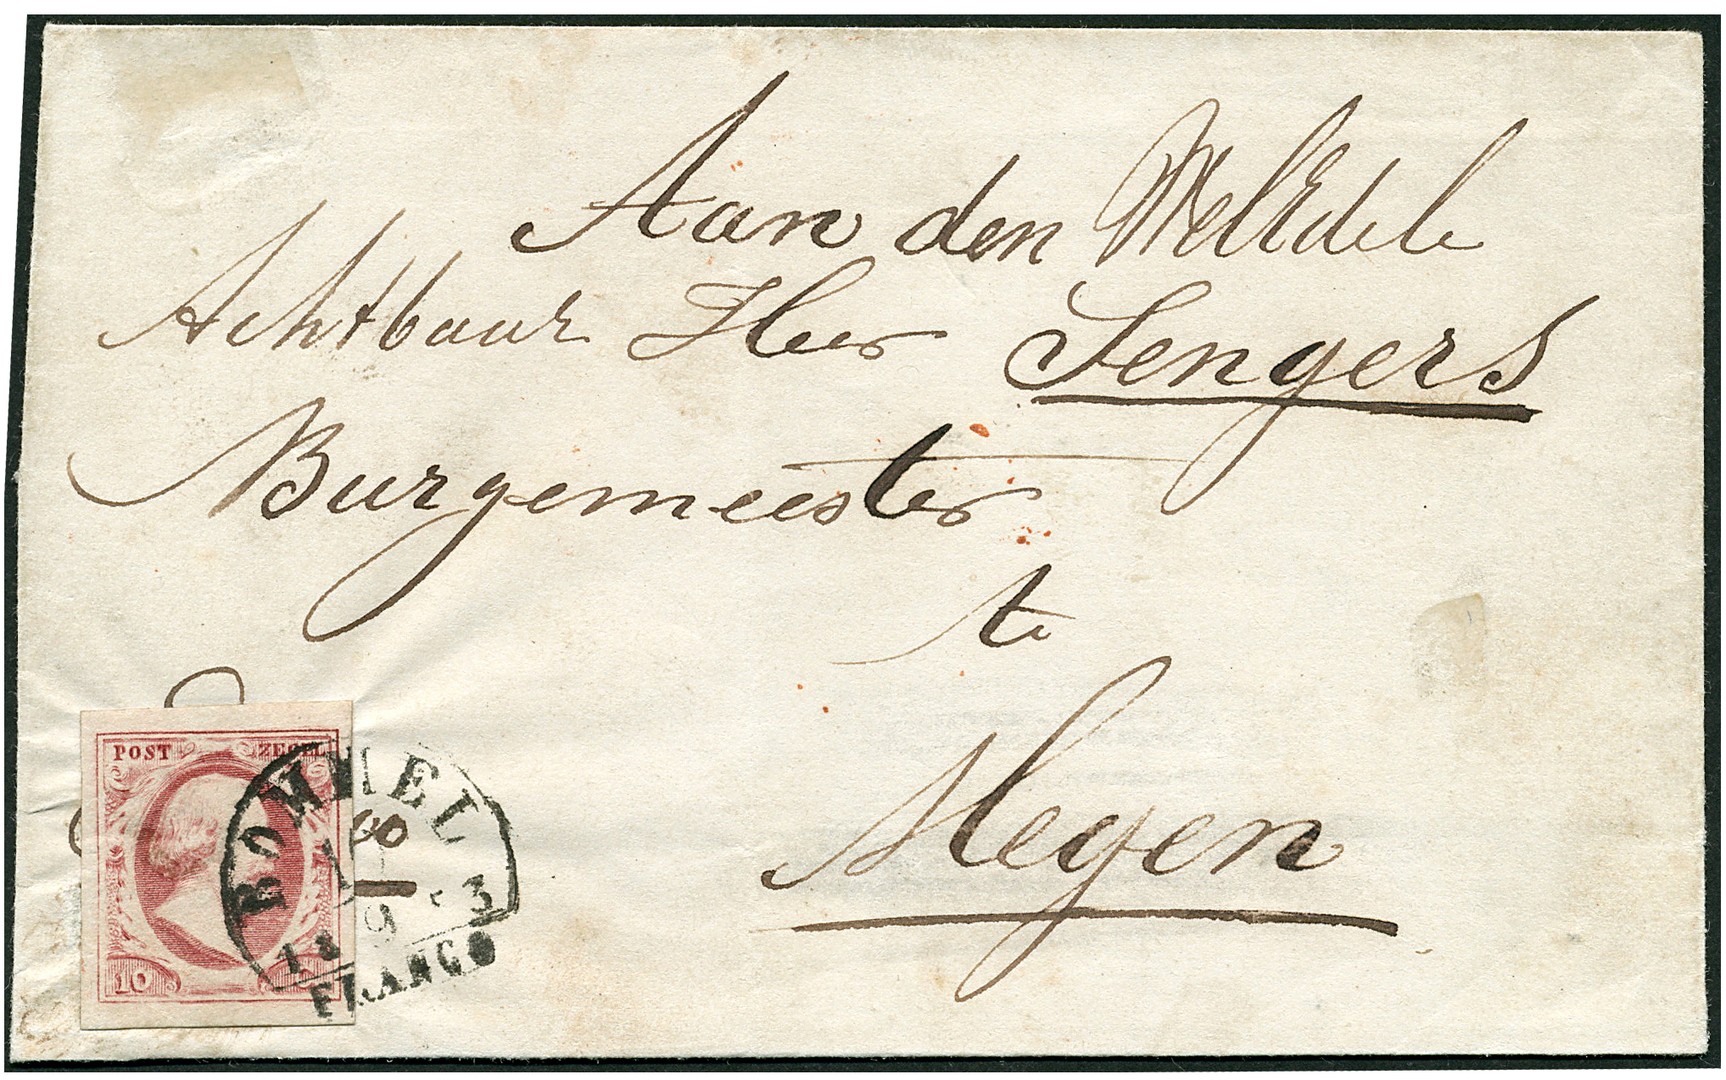 Aan den WelEdele
Achtbaar Heer Sengers
Burgemeester
te
Megen
POST ZEGEL
10
BOMMEL
18 53
FRANCO